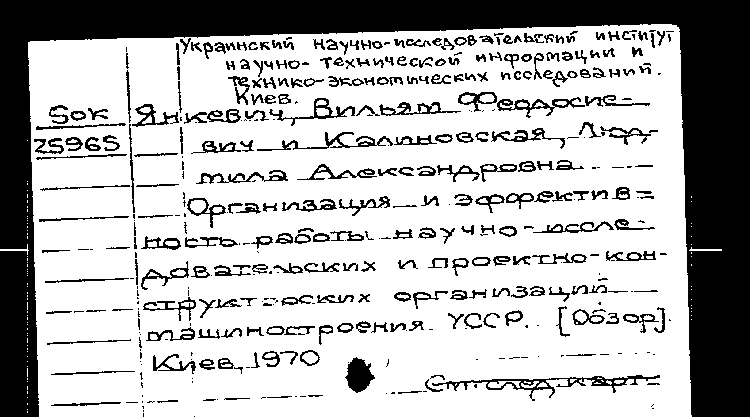 Украинский научно-исследовательский институт
научно-технической информации и
технико-экономических исследований.
Киев.
Sok Янкевич, Вильям Феодосие-
25965 вич и Калиновская, Люд-
мила Александровна
Организация и эффектив=
ность работы научно-иссле-
довательских и проектно-кон-
структорских организаций
машиностроения УССР. [Обзор].
Киев, 1970
См. след. карт.